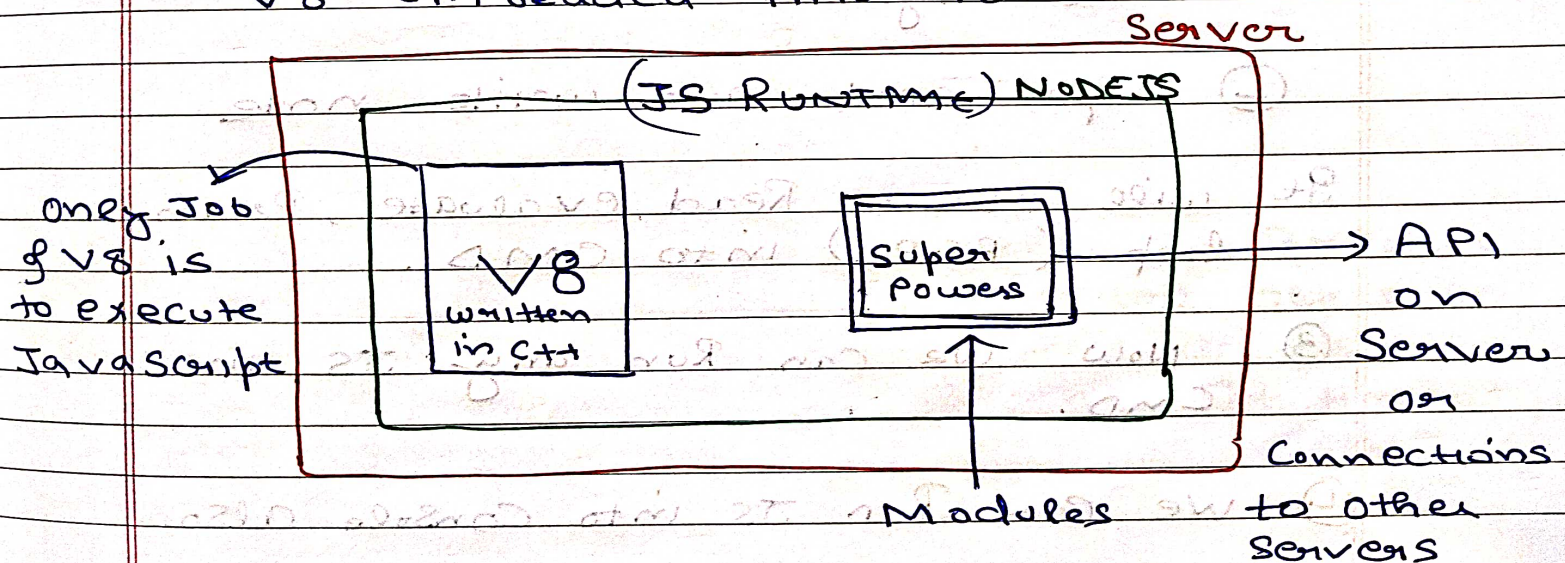 V8 embedded
Server
(JS RUNTIME) NODEJS
only Job
of V8 is
to execute
JavaScript
V8
written
in C++
Super
Powers
API
on
Server
or
Connections
to other
Servers
Modules